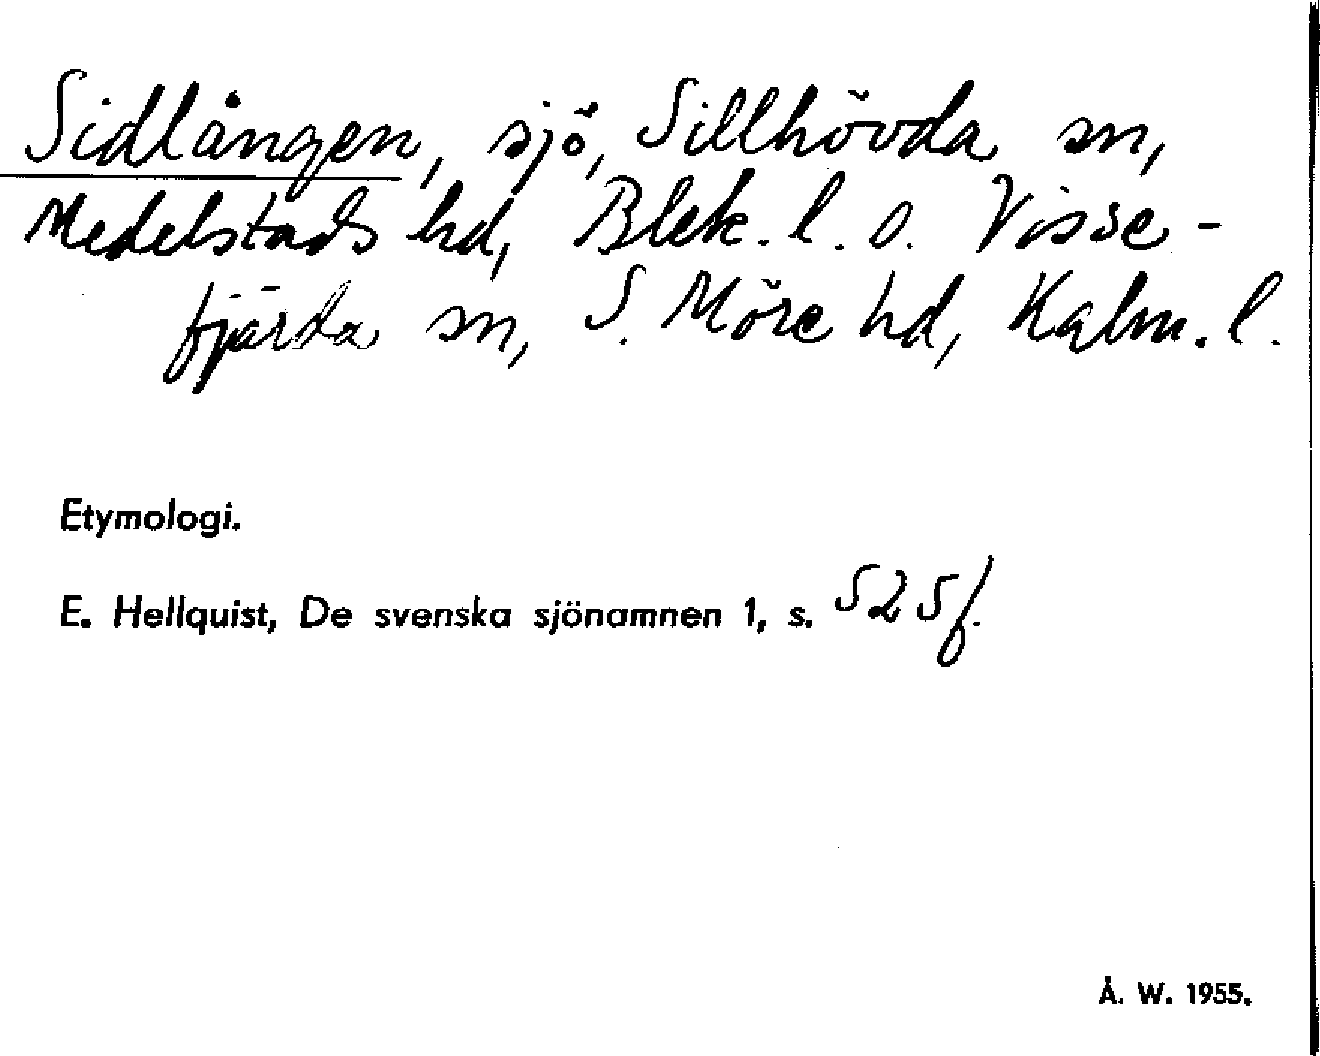 Sidlången, sjö, Sillhövda sn,
Medelstads hd, Blek. l. o. Visse-
fjärda sn, S. Möre hd, Kalm. l.
Etymologi.
E. Hellquist, De svenska sjönamnen 1, s. 525f.
Å. W. 1955.